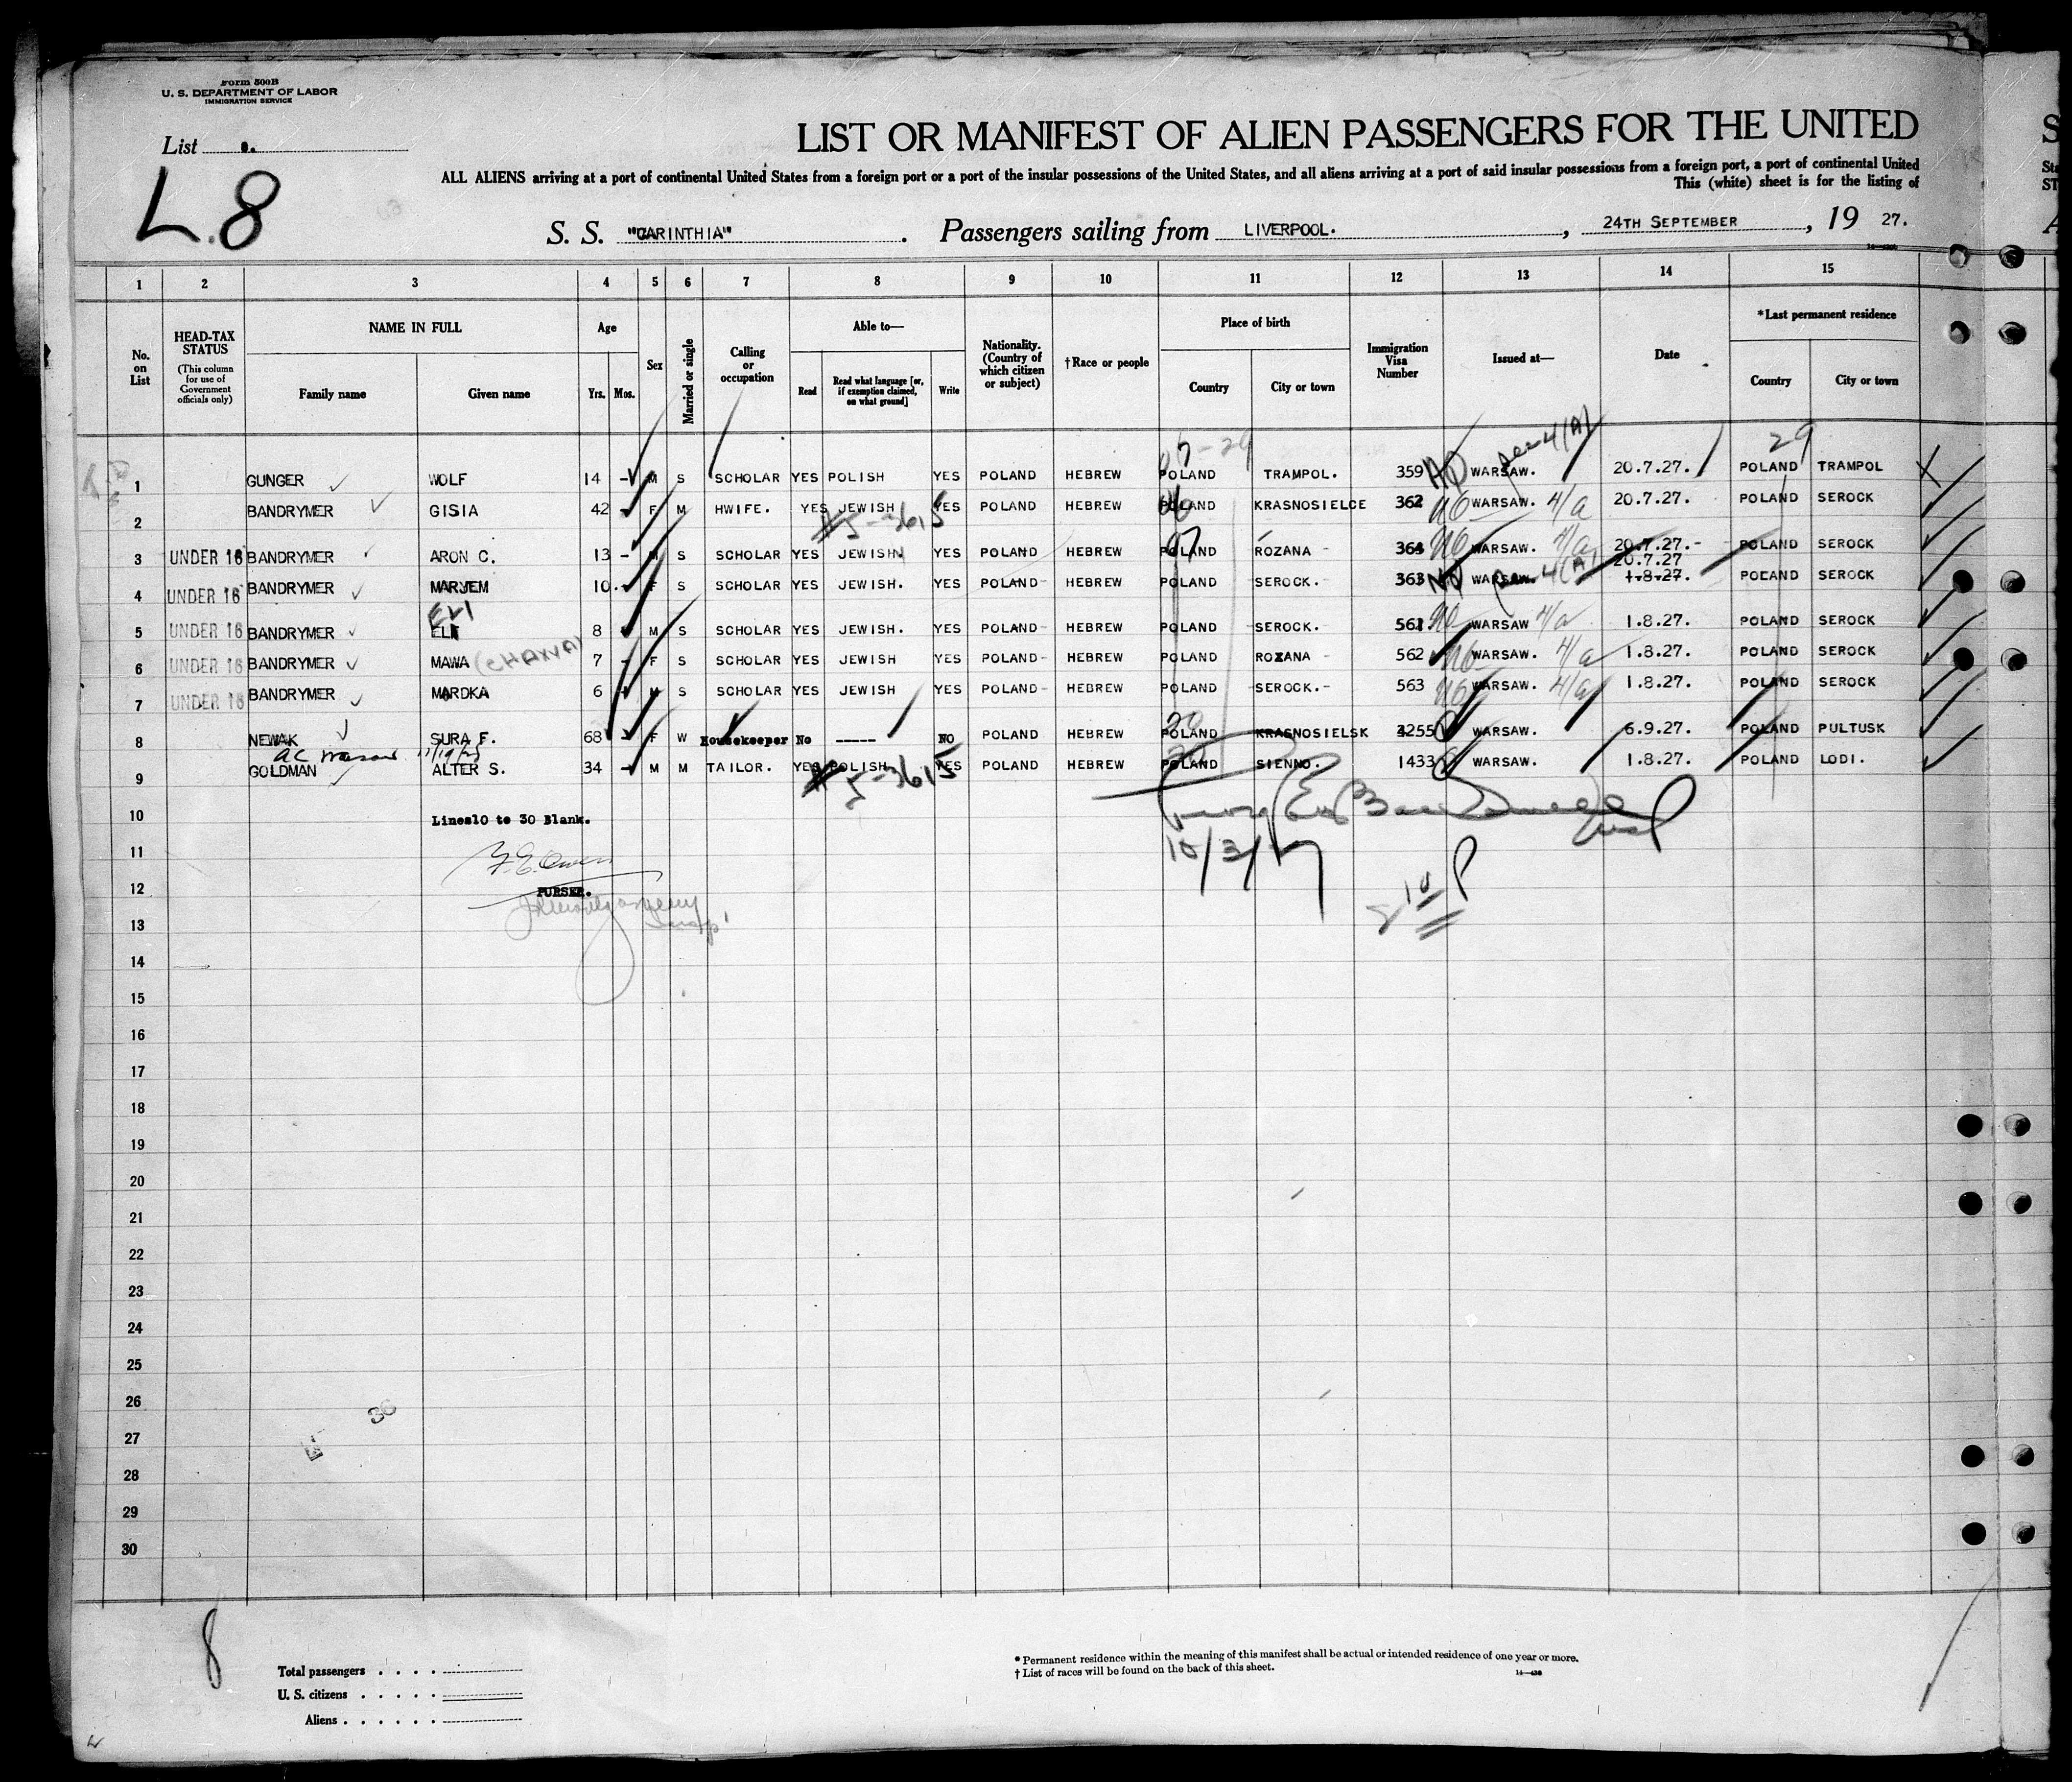 Form 500B
U. S. DEPARTMENT OF LABOR
IMMIGRATION SERVICE
List 8.
L.8
LIST OR MANIFEST OF ALIEN PASSENGERS FOR THE UNITED
ALL ALIENS arriving at a port of continental United States from a foreign port or a port of the insular possessions of the United States, and all aliens arriving at a port of said insular possessions from a foreign port, a port of continental United
This (white) sheet is for the listing of
S. S. "CARINTHIA" . Passengers sailing from LIVERPOOL. , 24TH SEPTEMBER , 19 27.
1 2 3 4 5 6 7 8 9 10 11 12 13 14 15
No. on List
HEAD-TAX STATUS (This column for use of Government officials only)
NAME IN FULL
Family name Given name
Age
Yrs. Mos.
Sex
Married or single
Calling or occupation
Able to—
Read Read what language [or, if exemption claimed, on what ground] Write
Nationality. (Country of which citizen or subject)
†Race or people
Place of birth
Country City or town
Immigration Visa Number
Issued at—
Date
*Last permanent residence
Country City or town
29
1 GUNGER WOLF 14 - M S SCHOLAR YES POLISH YES POLAND HEBREW POLAND TRAMPOL. 359 WARSAW. 20.7.27. POLAND TRAMPOL
2 BANDRYMER GISIA 42 - F M HWIFE. YES JEWISH YES POLAND HEBREW POLAND KRASNOSIELCE 362 WARSAW. 4/a 20.7.27. POLAND SEROCK
#5-3615
3 UNDER 16 BANDRYMER ARON C. 13 - M S SCHOLAR YES JEWISH YES POLAND HEBREW POLAND ROZANA 364 WARSAW. 4/a 20.7.27. POLAND SEROCK
20.7.27
4 UNDER 16 BANDRYMER MARJEM 10. F S SCHOLAR YES JEWISH. YES POLAND HEBREW POLAND SEROCK. 363 WARSAW. 4(A) 1.8.27. POLAND SEROCK
ELI
5 UNDER 16 BANDRYMER ELI 8 M S SCHOLAR YES JEWISH. YES POLAND HEBREW POLAND SEROCK. 561 WARSAW 4/a 1.8.27. POLAND SEROCK
6 UNDER 16 BANDRYMER MAWA (CHAWA) 7 - F S SCHOLAR YES JEWISH YES POLAND HEBREW POLAND ROZANA 562 WARSAW. 4/a 1.8.27. POLAND SEROCK
7 UNDER 16 BANDRYMER MARDKA 6 M S SCHOLAR YES JEWISH YES POLAND HEBREW POLAND SEROCK. 563 WARSAW. 4/a 1.8.27. POLAND SEROCK
8 NEWAK SURA F. 68 - F W Housekeeper No ----- NO POLAND HEBREW POLAND KRASNOSIELSK 4255 WARSAW. 6.9.27. POLAND PULTUSK
9 GOLDMAN ALTER S. 34 - M M TAILOR. YES POLISH YES POLAND HEBREW POLAND SIENNO. 1433 WARSAW. 1.8.27. POLAND LODI.
#5-3615
10 Lines10 to 30 Blank.
11
10/3/27
12 PURSER.
13
14
15
16
17
18
19
20
21
22
23
24
25
26
27
28
29
30
8
Total passengers . . . .
U. S. citizens . . . . .
Aliens . . . . . .
* Permanent residence within the meaning of this manifest shall be actual or intended residence of one year or more.
† List of races will be found on the back of this sheet.